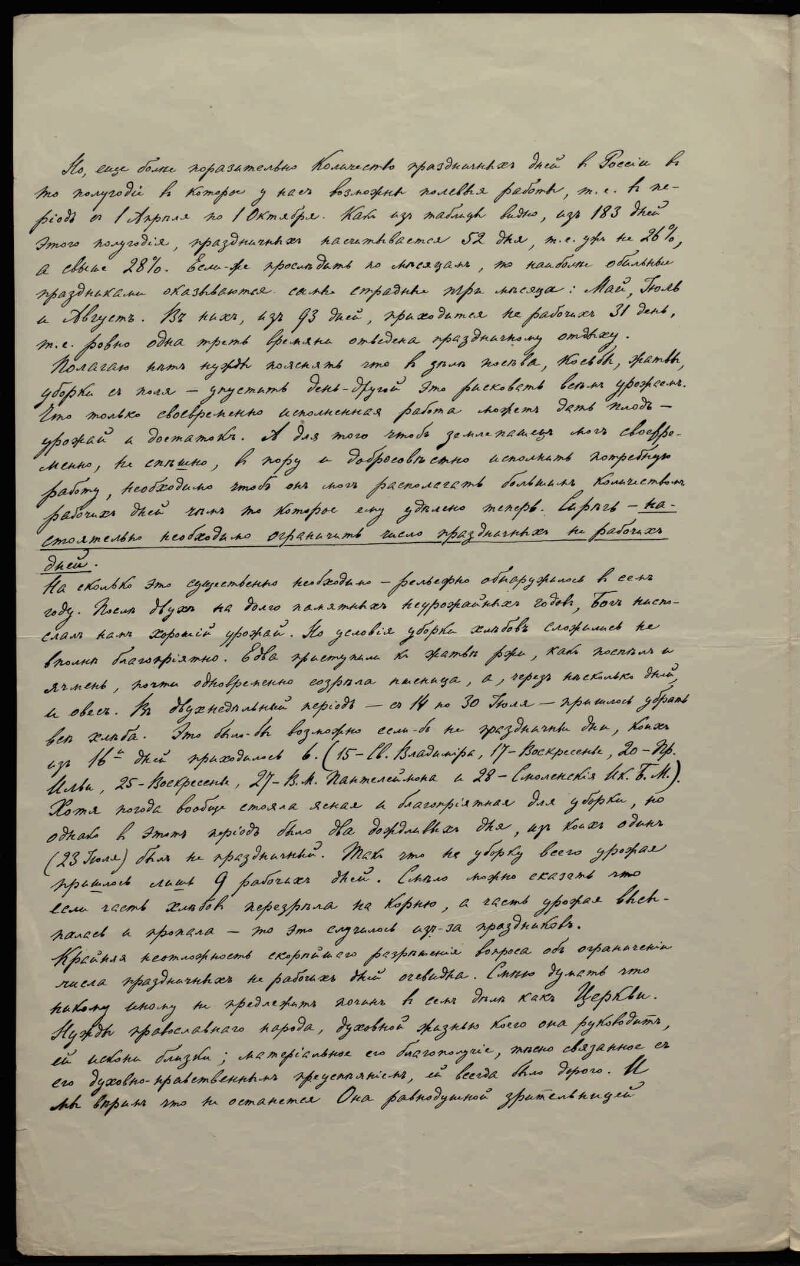 Но, еще болѣе поразительно количество праздничныхъ дней в Россіи въ
то полугодіе в которое у насъ возможны полевыя работы, т.е. въ пе-
ріодъ съ 1 Апрѣля по 1 Октября. Какъ изъ таблицы видно, изъ 183 дней
этого полугодія, праздничныхъ насчитывается 52 дня, т.е. ужъ не 26%,
а свыше 28%. Если-же прослѣдить по мѣсяцамъ, то наиболѣе обильные
праздниками оказываются самые страдные три мѣсяца: Май, Іюль
и Августъ. Въ нихъ, изъ 93 дней, приходится не рабочихъ 31 день,
т.е. ровно одна треть времяни отведена праздничному отдыху.
Полагаю нѣтъ нужды пояснять что в дѣлѣ посѣва, косьбы, жатвы,
уборки съ поля — упустить день-другой это рисковать всѣмъ урожаемъ.
Что только своевременно исполненная работа можетъ дать плодъ —
урожай и достатокъ. А для того чтобъ землепашецъ могъ своевре-
менно, не спѣшно, в пору и добросовѣстно исполнить потребную
работу, необходимо чтобъ онъ могъ располагать большимъ количествомъ
рабочихъ дней чѣмъ то которое ему удѣлено теперь. Сирѣчь — на-
стоятельно необходимо ограничить число праздничныхъ не рабочихъ
дней.
На сколько это существенно необходимо — рельефно обнаружилось в семъ
году. Послѣ двухъ на долго памятныхъ неурожайныхъ годовъ, Богъниспо-
слалъ намъ хорошій урожай. Но условія уборки хлѣбовъ сложились не
вполнѣ благопріятно. Едва приступили къ жатвѣ ржи, какъ поспѣлъ и
ячмень, почти одновременно созрѣла пшеница, а, черезъ нѣсколько дней,
и овесъ. Въ двухнедѣльный періодъ — съ 14 по 30 Іюля — пришлось убрать
всѣ хлѣба. Это было-бы возможно если-бъ не праздничные дни, коихъ
изъ 16ти дней приходилось 6. (15-Св. Владиміра, 17-Воскресенье, 20-Пр.
Ильи, 25-Воскресенье, 27-В.М. Пантелеймона и 28-Смоленскія Ик. Б.М.).
Хотя погода вообще стояла ясная и благопріятная для уборки, но
однако в этотъ періодъ было два дождливыхъ дня, изъ коихъ одинъ
(23 Іюля) былъ не праздничный. Такъ что на уборку всего урожая
пришлось лишь 9 рабочихъ дней. Смѣло можно сказать что
если часть хлѣбовъ перезрѣла на корню, а часть урожая высы-
палась и пропала — то это случилось изъ-за праздниковъ.
Крайняя неотложность скорѣйшаго разрѣшенія вопроса объ ограниченіи
числа праздничныхъ не рабочихъ дней очевидна. Смѣю думать что
никому иному не предлежитъ починъ в семъ дѣлѣ какъ Церкви.
Нужды православнаго народа, духовной жизнью коего она руководитъ,
ей искони близки; матеріальное его благополучіе, тѣсно связанное съ
его духовно-нравственнымъ преуспѣяніемъ, ей всегда было дорого. И
мы вѣримъ что не останется Она равнодушной зрительницей